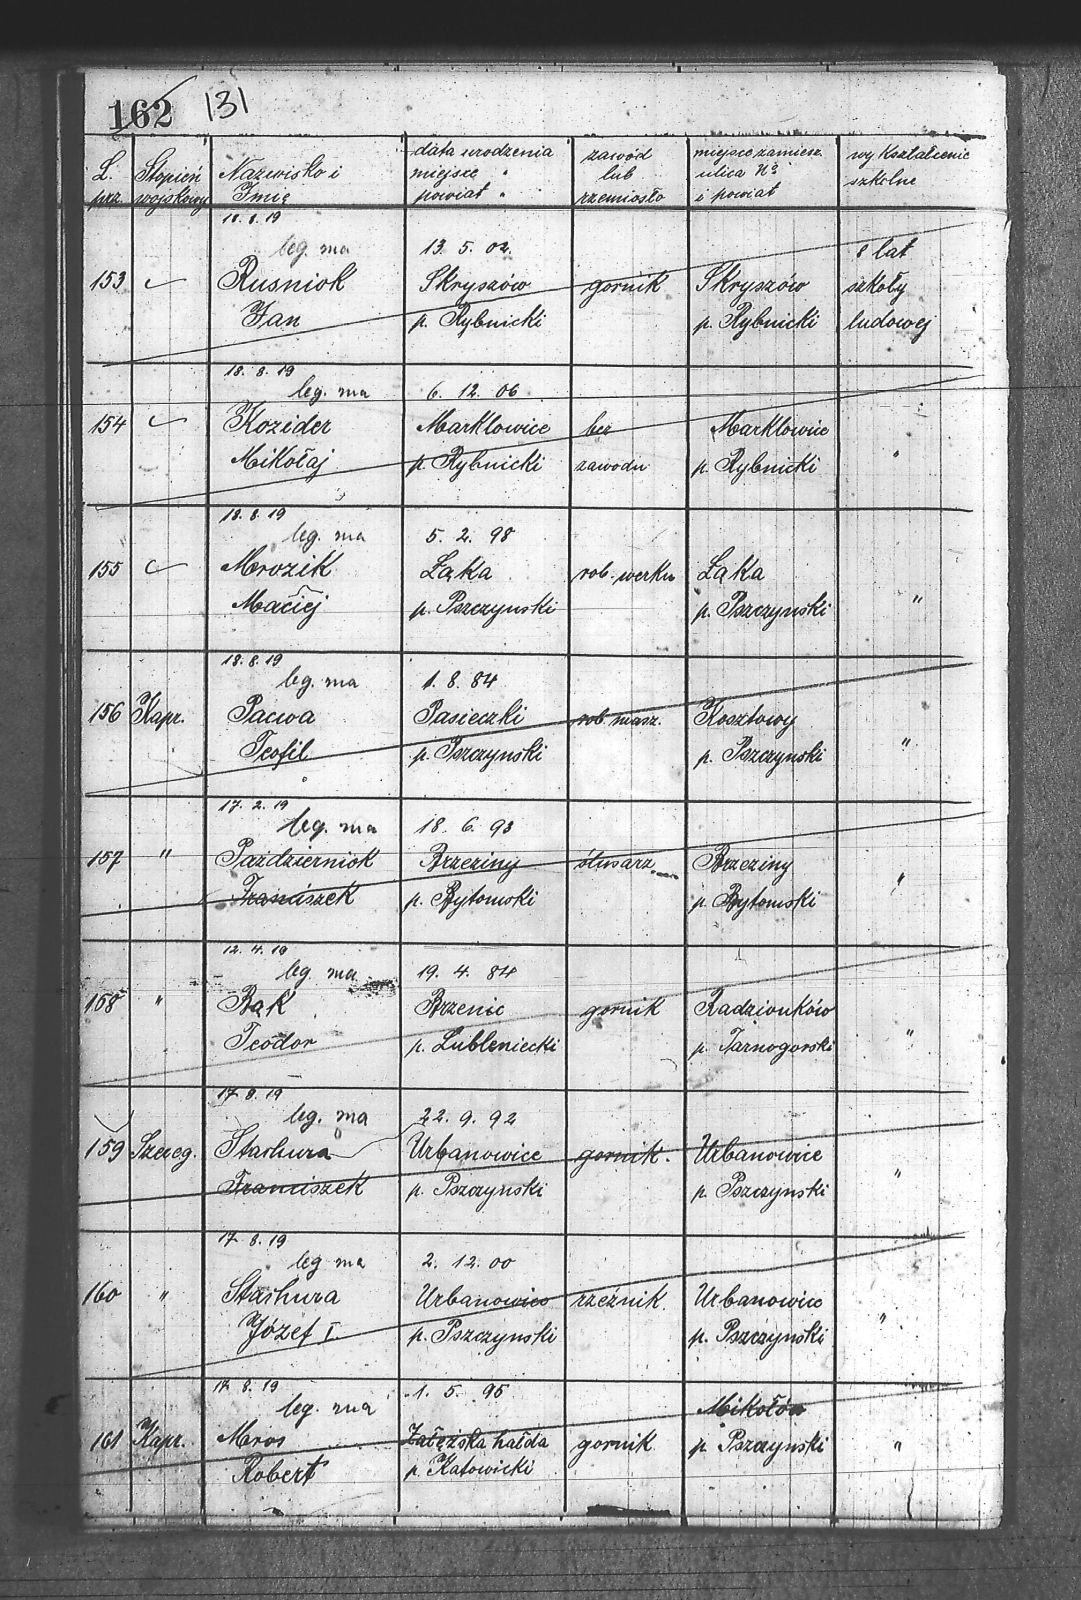 162 131
L. prz. Stopień wojskowy Nazwisko i Imię data urodzenia miejsce " powiat " zawód lub rzemiosło miejsce zamiesz. ulica No i powiat wykształcenie szkolne
18.8.19
leg. ma 13. 5. 02. 8 lat
153 Rusniok Skryszów gornik Skryszów szkoły
Jan p. Rybnicki p. Rybnicki ludowej
18.8.19
leg. ma 6. 12. 06
154 Kozider Marklowice bez Marklowice
Mikołaj p. Rybnicki zawodu p. Rybnicki "
18.8.19
leg. ma 5. 2. 98
155 Mrozik Łąka rob. werku Łąka
Maciej p. Pszczynski p. Pszczynski "
18.8.19
leg. ma 1. 8. 84
156 Kapr. Pacwa Pasieczki rob. masz. Kosztowy
Teofil p. Pszczynski p. Pszczynski "
17. 2. 19
leg. ma 18. 6. 93
157 " Pazdzierniok Brzeziny ślusarz Brzeziny
Franciszek p. Bytomski p. Bytomski "
12. 4. 19
leg. ma 19. 4. 84
158 " Bąk Brzenic gornik Radzionków
Teodor p. Lubleniecki p. Tarnogorski "
17. 8. 19
leg. ma 22. 9. 92
159 Szereg. Stachura Urbanowice gornik. Urbanowice
Franciszek p. Pszczynski p. Pszczynski "
17. 8. 19
leg ma 2. 12. 00
160 " Stachura Urbanowice rzeznik. Urbanowice
Józef I. p. Pszczynski p. Pszczynski "
17. 8. 19
leg. ma 1. 5. 95 Mikołów
161 Kapr. Mros Załęzska hałda gornik p. Pszczynski "
Robert p. Katowicki